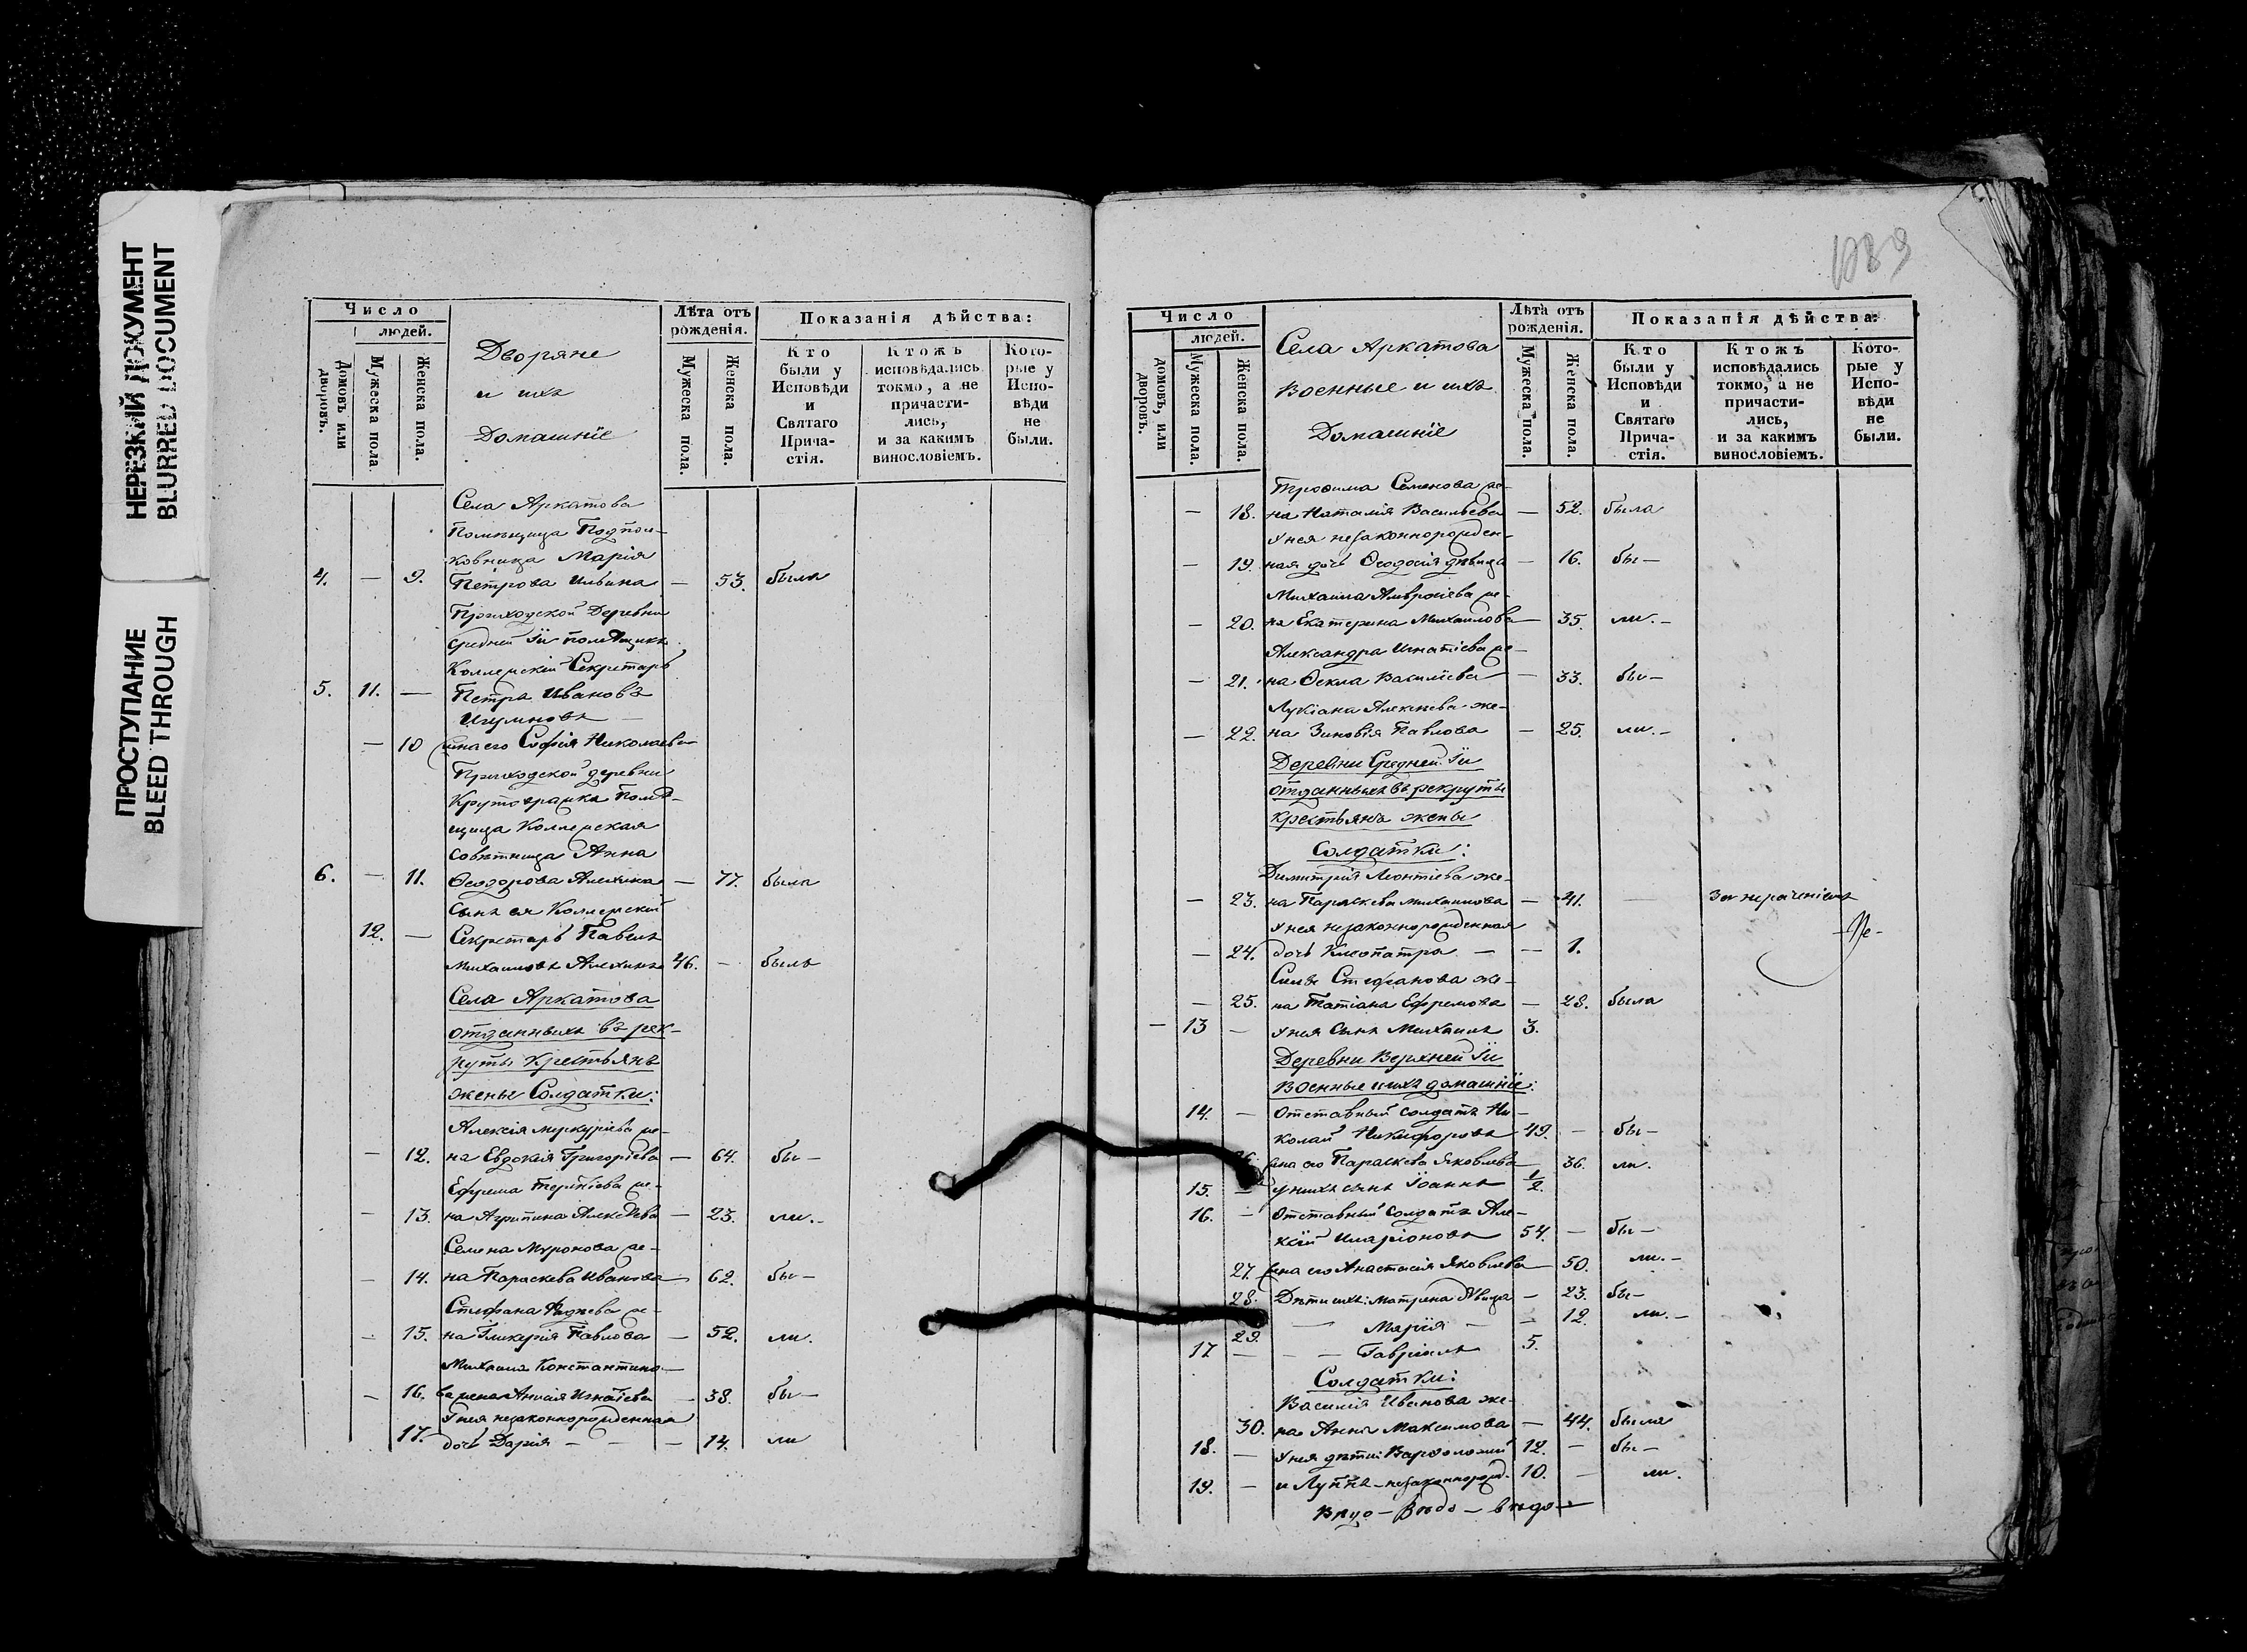 НЕРЕЗКИЙ ДОКУМЕНТ
BLURRED DOCUMENT
ПРОСТУПАНИЕ
BLEED THROUGH
Число
людей.
Домовъ или дворовъ.
Мужеска пола
Женска пола.
Дворяне
и ихъ
Домашніе
Лѣта отъ рожденія.
Мужеска пола.
Женска пола.
Показанія дѣйства:
Кто были у Исповѣди и Святаго Прича-стія.
Ктожъ исповѣдались токмо, а не причасти-лись, и за какимъ винословіемъ.
Кото-рые у Испо-вѣди не были.
Села Аркатова
Помѣщица Подпол-
ковница Марія
4. — 9. Петрова Ильина — 53. была
Приходской Деревни
Средней Іи помѣщикъ
Коллежскій Секретарь
5. 11. — Петръ Ивановъ
— 10 жена его Софія Николаева
Приходской деревни
Крутовражка Помѣ-
щица Коллежская
Совѣтница Анна
6. — 11. Ѳеодорова Алехина — 77. была
Сынъ ея Коллежскій
12. — Секретарь Павелъ
Михаиловъ Алехинъ 46. — былъ
Села Аркатова
отданныхъ въ рек-
руты Крестьянъ
жены Солдатки:
Алексія Меркуріева же-
— 12. на Евдокія Григоріева — 64. бы —
Ефрема Терентіева же-
— 13. на Агрипина Алексѣева — 23. ли. -
Семена Миронова же-
— 14. на Параскева Иванова 62. бы —
Стефана Фадѣева же-
— 15. на Гликерія Павлова — 52. ли.
Михаила Константино-
— 16. ва жена Анисія Игнатіева — 38. бы —
У нея незаконнорожденная
17. дочь Дарія — — — 14. ли
1089
Число
людей.
домовъ, или дворовъ.
Мужеска пола.
Женска пола.
Села Аркатова
Военные и ихъ
Домашніе
Лѣта отъ рожденія.
Мужеска пола.
Женска пола.
Показанія дѣйства:
Кто были у Исповѣди и Святаго Прича-стія.
Ктожъ исповѣдались токмо, а не причасти-лись, и за какимъ винословіемъ.
Кото-рые у Испо-вѣди не были.
Трофима Семенова же-
— 18. на Наталія Васильева — 52. была
У нея незаконнорожден-
— 19. ная дочь Ѳеодосія дѣвица — 16. бы —
Михаила Амвросіева же-
— 20. на Екатерина Михаилова — 35. ли. -
Александра Игнатіева же-
— 21. на Ѳекла Васильева — 33. бы —
Лукіана Алексѣева же-
— 22. на Зиновія Павлова — 25. ли. -
Деревни Средней Іи
отданныхъ въ рекруты
крестьянъ жены
Солдатки:
Димитрія Леонтіева же-
— 23. на Параскева Михаилова — 41. — За нераченіемъ
У нея незаконнорожденная
— 24. дочь Клеопатра — — 1.
Силы Стефанова же-
— 25. на Татіана Ефремова — 28. была
— 13 — У нея Сынъ Михаилъ 3.
Деревни Верхней Іи
Военные и ихъ домашніе:
14. — Отставный солдатъ Ни-
колай Никифоровъ 49. — бы —
26. жена его Параскева Яковлева 36. ли.
15. — у нихъ сынъ Іоаннъ 1/2.
16. — Отставный солдатъ Але-
ксій Иларіоновъ 54. — бы —
27. жена его Анастасія Яковлева — 50. ли. -
28. Дѣти ихъ: Матрена дѣвица — 23. бы -
29. — Марія — — 12. ли. -
17 — — — Гавріилъ 5.
Солдатки:
Василія Иванова же-
30. на Анна Максимова — 44. была
18. — У нея дѣти: Варѳоломей 12. — бы —
19. — и Луппъ - незаконнорожд. 10. — ли.